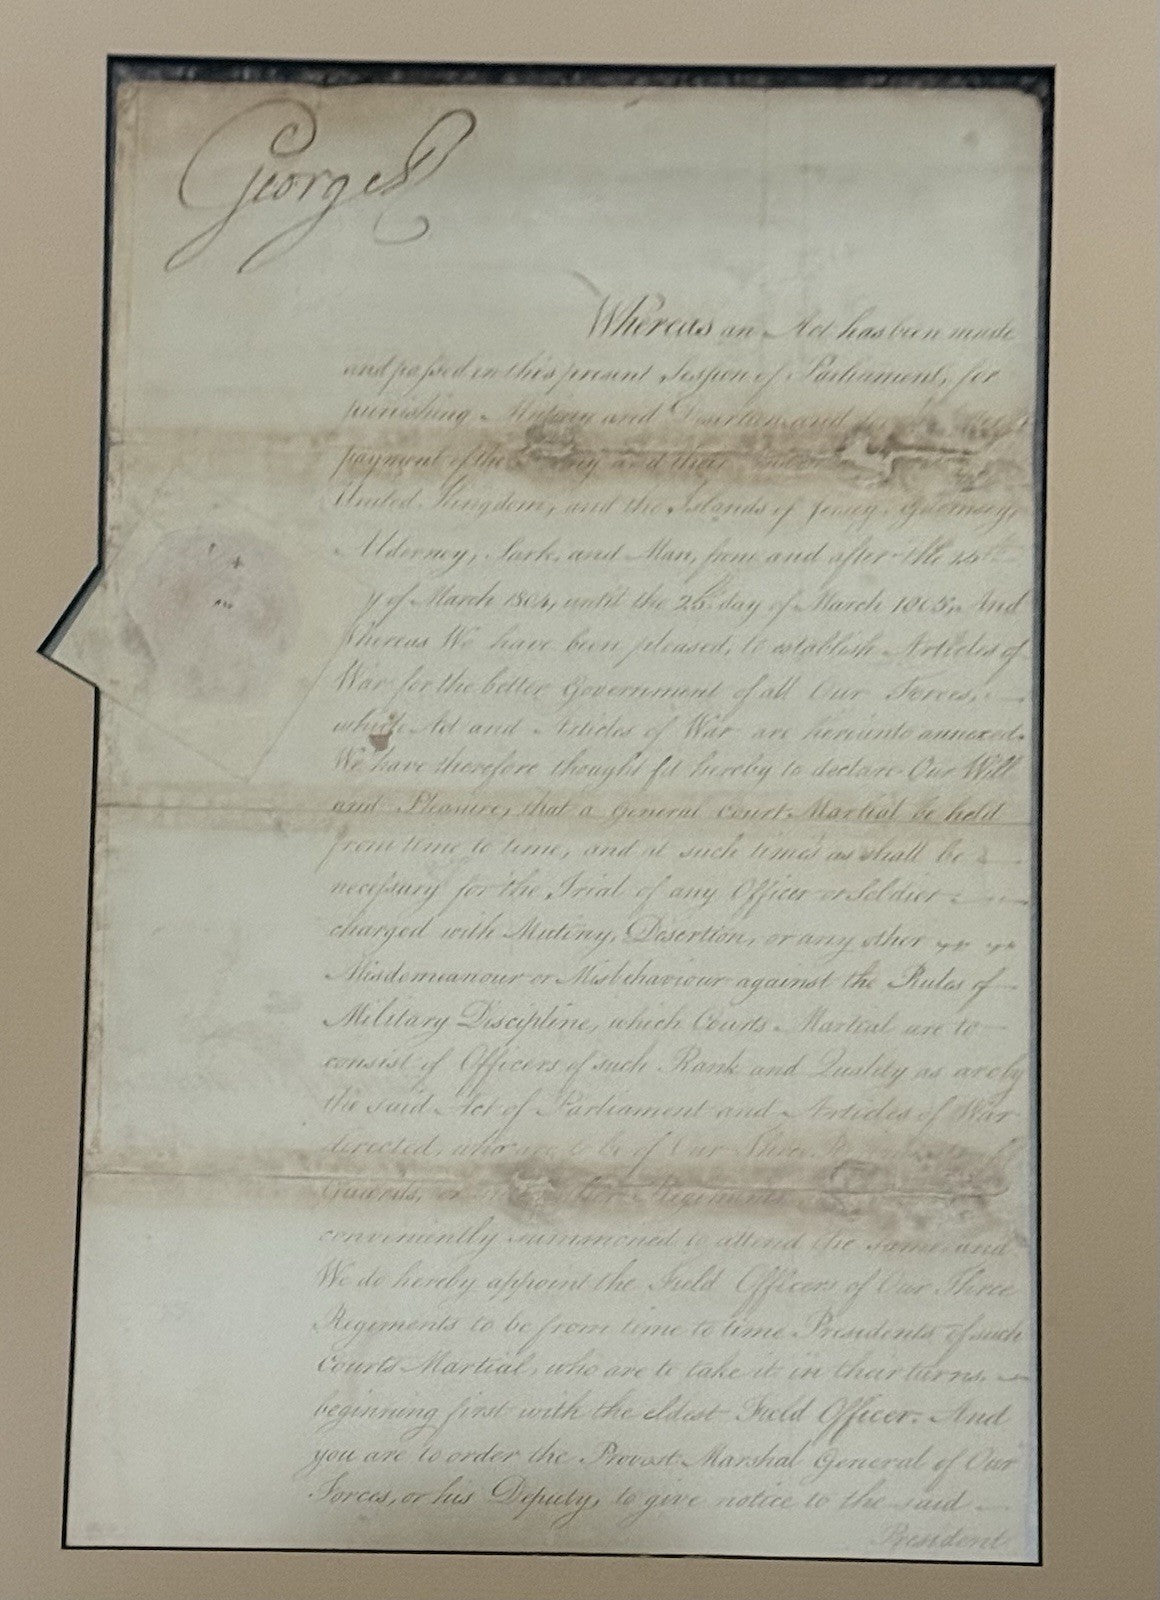 George R
Whereas an Act has been made
and passed in this present Session of Parliament, for
punishing Mutiny and Desertion, and
payment of the Army and their
United Kingdom, and the Islands of Jersey, Guernsey,
Alderney, Sark, and Man, from and after the
y of March 1804, until the 25th day of March 1805, And
Whereas We have been pleased, to establish Articles of
War for the better Government of all Our Forces,
which Act and Articles of War are hereunto annexed.
We have therefore thought fit hereby to declare Our Will
and Pleasure, that a General Court Martial be held
from time to time, and at such times as shall be
necessary for the Trial of any Officer or Soldier
charged with Mutiny, Desertion, or any other
Misdemeanour or Misbehaviour against the Rules of
Military Discipline, which Courts Martial are to
consist of Officers of such Rank and Quality as are by
the said Act of Parliament and Articles of War
directed, who are to be of Our Three
Guards, or Regiments
conveniently summoned to attend the same, and
We do hereby appoint the Field Officers of Our Three
Regiments to be from time to time Presidents of such
Courts Martial, who are to take it in their turns,
beginning first with the eldest Field Officer. And
you are to order the Provost Marshal General of Our
Forces, or his Deputy, to give notice to the said
President